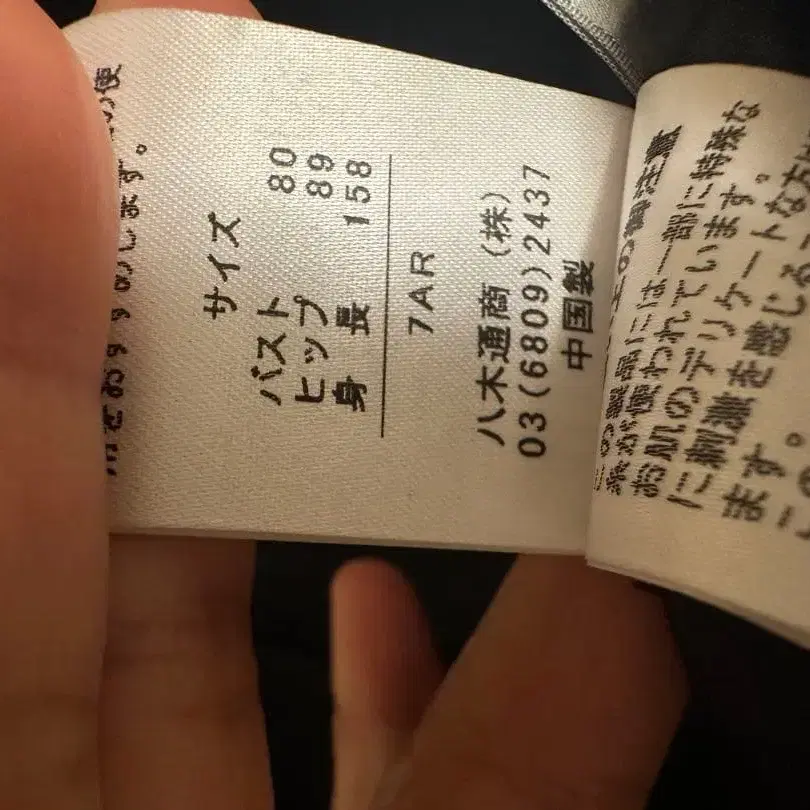 す。
サイズ
バスト 80
ヒップ 89
身長 158
7AR
八木通商(株)
03(6809)2437
中国製
この製品には一部に特殊な
糸が使われています。
お肌のデリケートな方は
に刺激を感じる
ます。